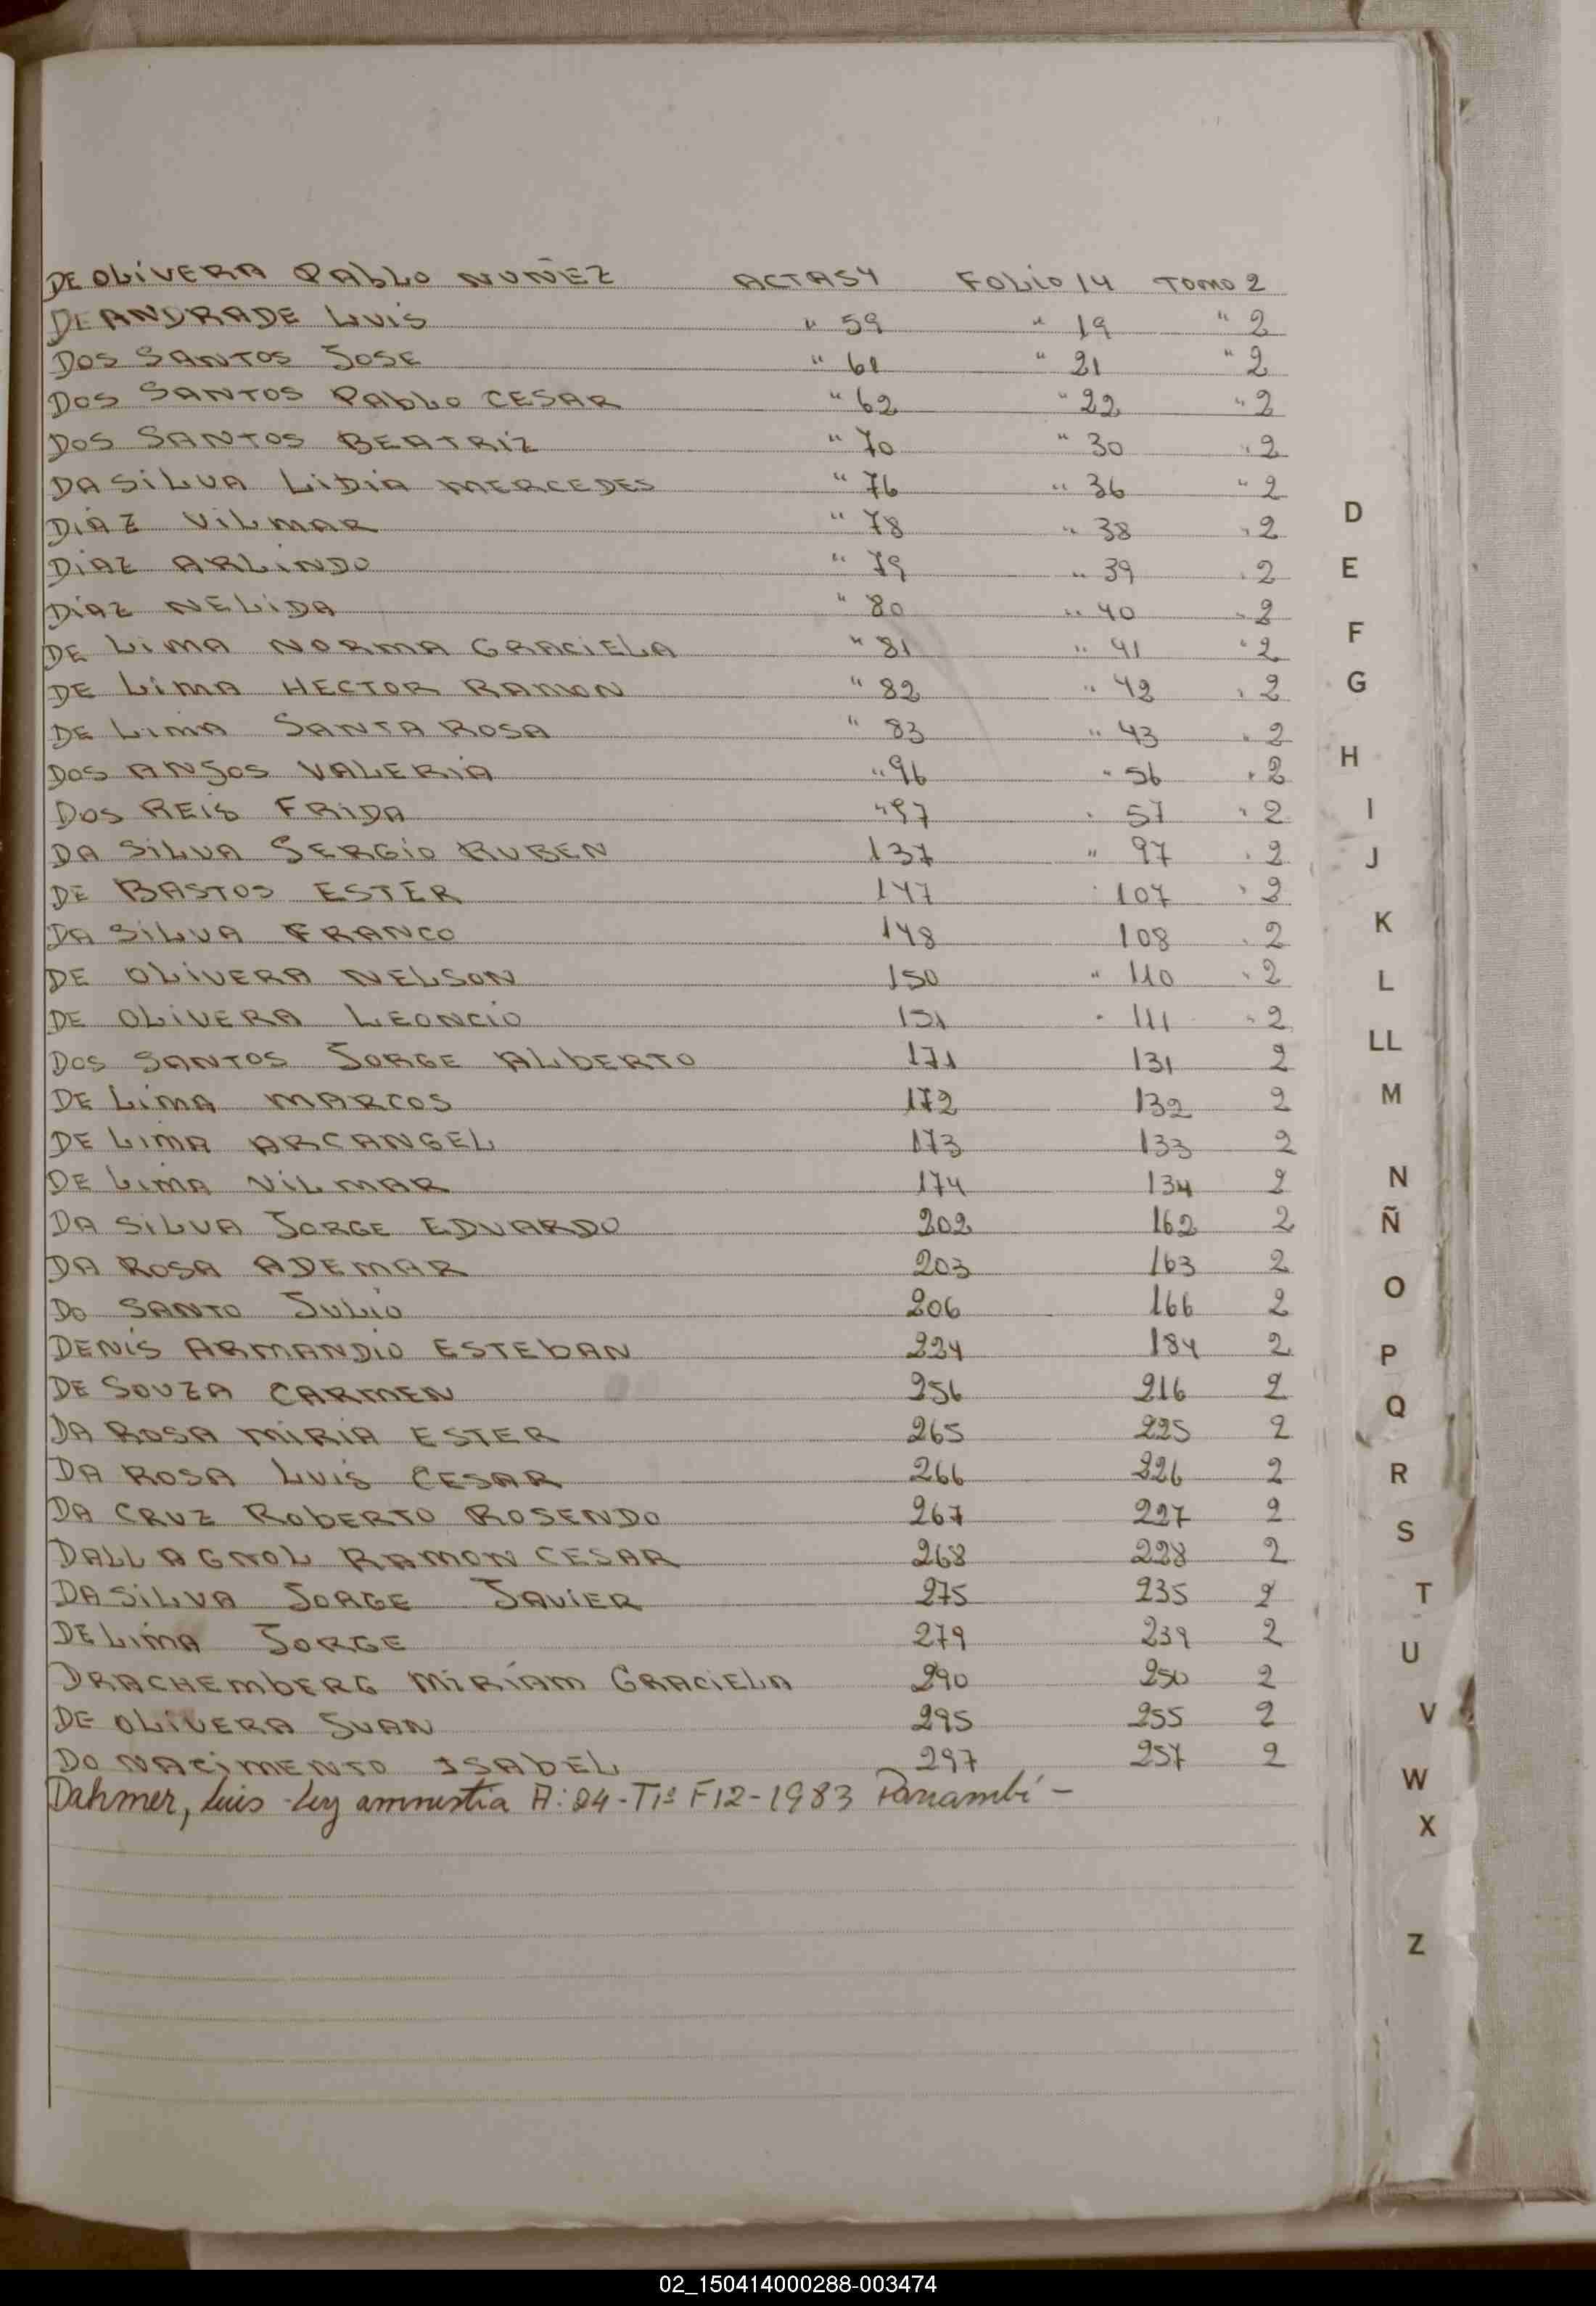 DE OLIVERA PABLO NUÑEZ ACTA 54 FOLIO 14 TOMO 2
DE ANDRADE LUIS " 59 " 19 " 2
DOS SANTOS JOSE " 61 " 21 " 2
DOS SANTOS PABLO CESAR " 62 " 22 " 2
DOS SANTOS BEATRIZ " 70 " 30 " 2
DA SILVA LIDIA MERCEDES " 76 " 36 " 2
DIAZ VILMAR " 78 " 38 " 2
DIAZ ARLINDO " 79 " 39 " 2
DIAZ NELIDA " 80 " 40 " 2
DE LIMA NORMA GRACIELA " 81 " 41 " 2
DE LIMA HECTOR RAMON " 82 " 42 " 2
DE LIMA SANTA ROSA " 83 " 43 " 2
DOS ANJOS VALERIA " 96 " 56 " 2
DOS REIS FRIDA " 97 " 57 " 2
DA SILVA SERGIO RUBEN 137 " 97 " 2
DE BASTOS ESTER 147 " 107 " 2
DA SILVA FRANCO 148 108 " 2
DE OLIVERA NELSON 150 " 110 " 2
DE OLIVERA LEONCIO 151 " 111 " 2
DOS SANTOS JORGE ALBERTO 171 131 2
DE LIMA MARCOS 172 132 2
DE LIMA ARCANGEL 173 133 2
DE LIMA VILMAR 174 134 2
DA SILVA JORGE EDUARDO 202 162 2
DA ROSA ADEMAR 203 163 2
DO SANTO JULIO 206 166 2
DENIS ARMANDIO ESTEBAN 224 184 2
DE SOUZA CARMEN 256 216 2
DA ROSA MIRIA ESTER 265 225 2
DA ROSA LUIS CESAR 266 226 2
DA CRUZ ROBERTO ROSENDO 267 227 2
DALL AGNOL RAMON CESAR 268 228 2
DA SILVA JORGE JAVIER 275 235 2
DE LIMA JORGE 279 239 2
DRACHEMBERG MIRIAM GRACIELA 290 250 2
DE OLIVERA JUAN 295 255 2
DO NACIMENTO ISABEL 297 257 2
Dahmer, Luis - Ley amnistia A: 24 - T1º F12 - 1983 Panambí -
D
E
F
G
H
I
J
K
L
LL
M
N
Ñ
O
P
Q
R
S
T
U
V
W
X
Z
02_150414000288-003474